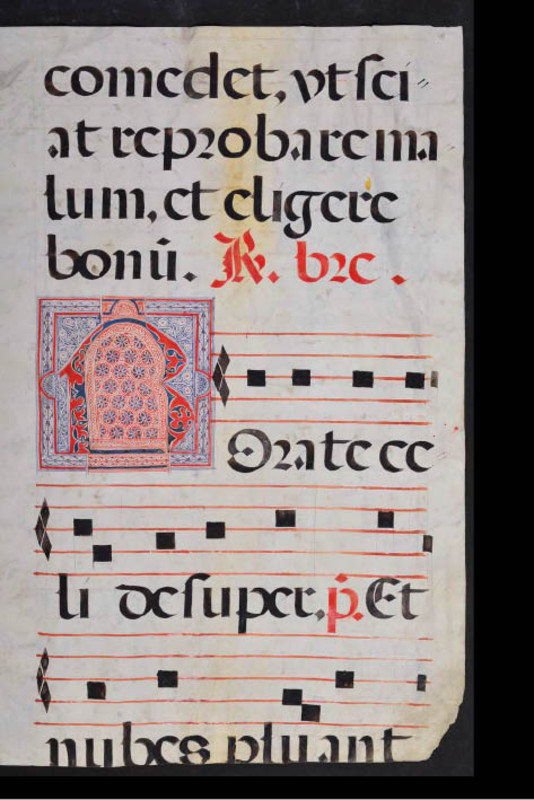 comedet, vt sci〃
at reprobare ma
lum, et eligere
bonū. R. bre.
Rorate cę
li desuper, p̄. Et
nubes pluant